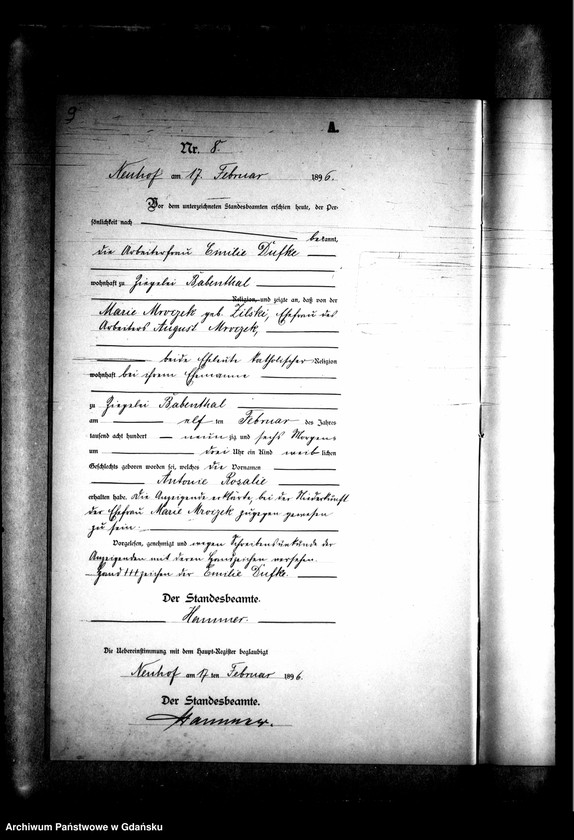 9
A.
Nr. 8.
Neuhof am 17. Februar 1896.
Vor dem unterzeichneten Standesbeamten erschien heute, der Per-
sönlichkeit nach
bekannt,
die Arbeiterfrau Emilie Dufke
wohnhaft zu Ziegelei Babenthal
Religion, und zeigte an, daß von der
Marie Mroczek geb. Zilski, Ehefrau des
Arbeiters August Mroczek,
beide Eheleute katholischer Religion
wohnhaft bei ihrem Ehemanne
zu Ziegelei Babenthal
am elf ten Februar des Jahres
tausend acht hundert neunzig und sechs Morgens
um drei Uhr ein Kind weiblichen
Geschlechts geboren worden sei, welches die Vornamen
Antonie Rosalie
erhalten habe. Die Anzeigende erklärte, bei der Niederkunft
der Ehefrau Marie Mroczek zugegen gewesen
zu sein.
Vorgelesen, genehmigt und wegen Schreibensunkunde der
Anzeigenden mit deren Handzeichen versehen.
Hand +++ zeichen der Emilie Dufke.
Der Standesbeamte.
Hammer.
Die Uebereinstimmung mit dem Haupt-Register beglaubigt
Neuhof am 17 ten Februar 1896.
Der Standesbeamte.
Hammer.
Archiwum Państwowe w Gdańsku